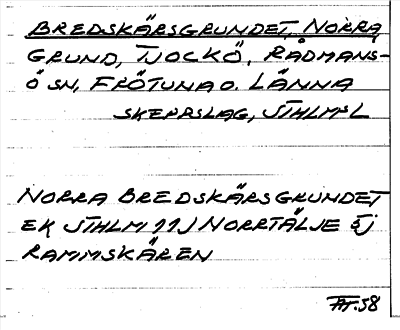 BREDSKÄRSGRUNDET, NORRA
GRUND, TJOCKÖ, RÅDMANS-
Ö SN, FRÖTUNA O. LÄNNA
SKEPPSLAG, STHLMS L
NORRA BREDSKÄRSGRUNDET
EK STHLM 11J NORRTÄLJE SJ
RAMMSKÄREN
58